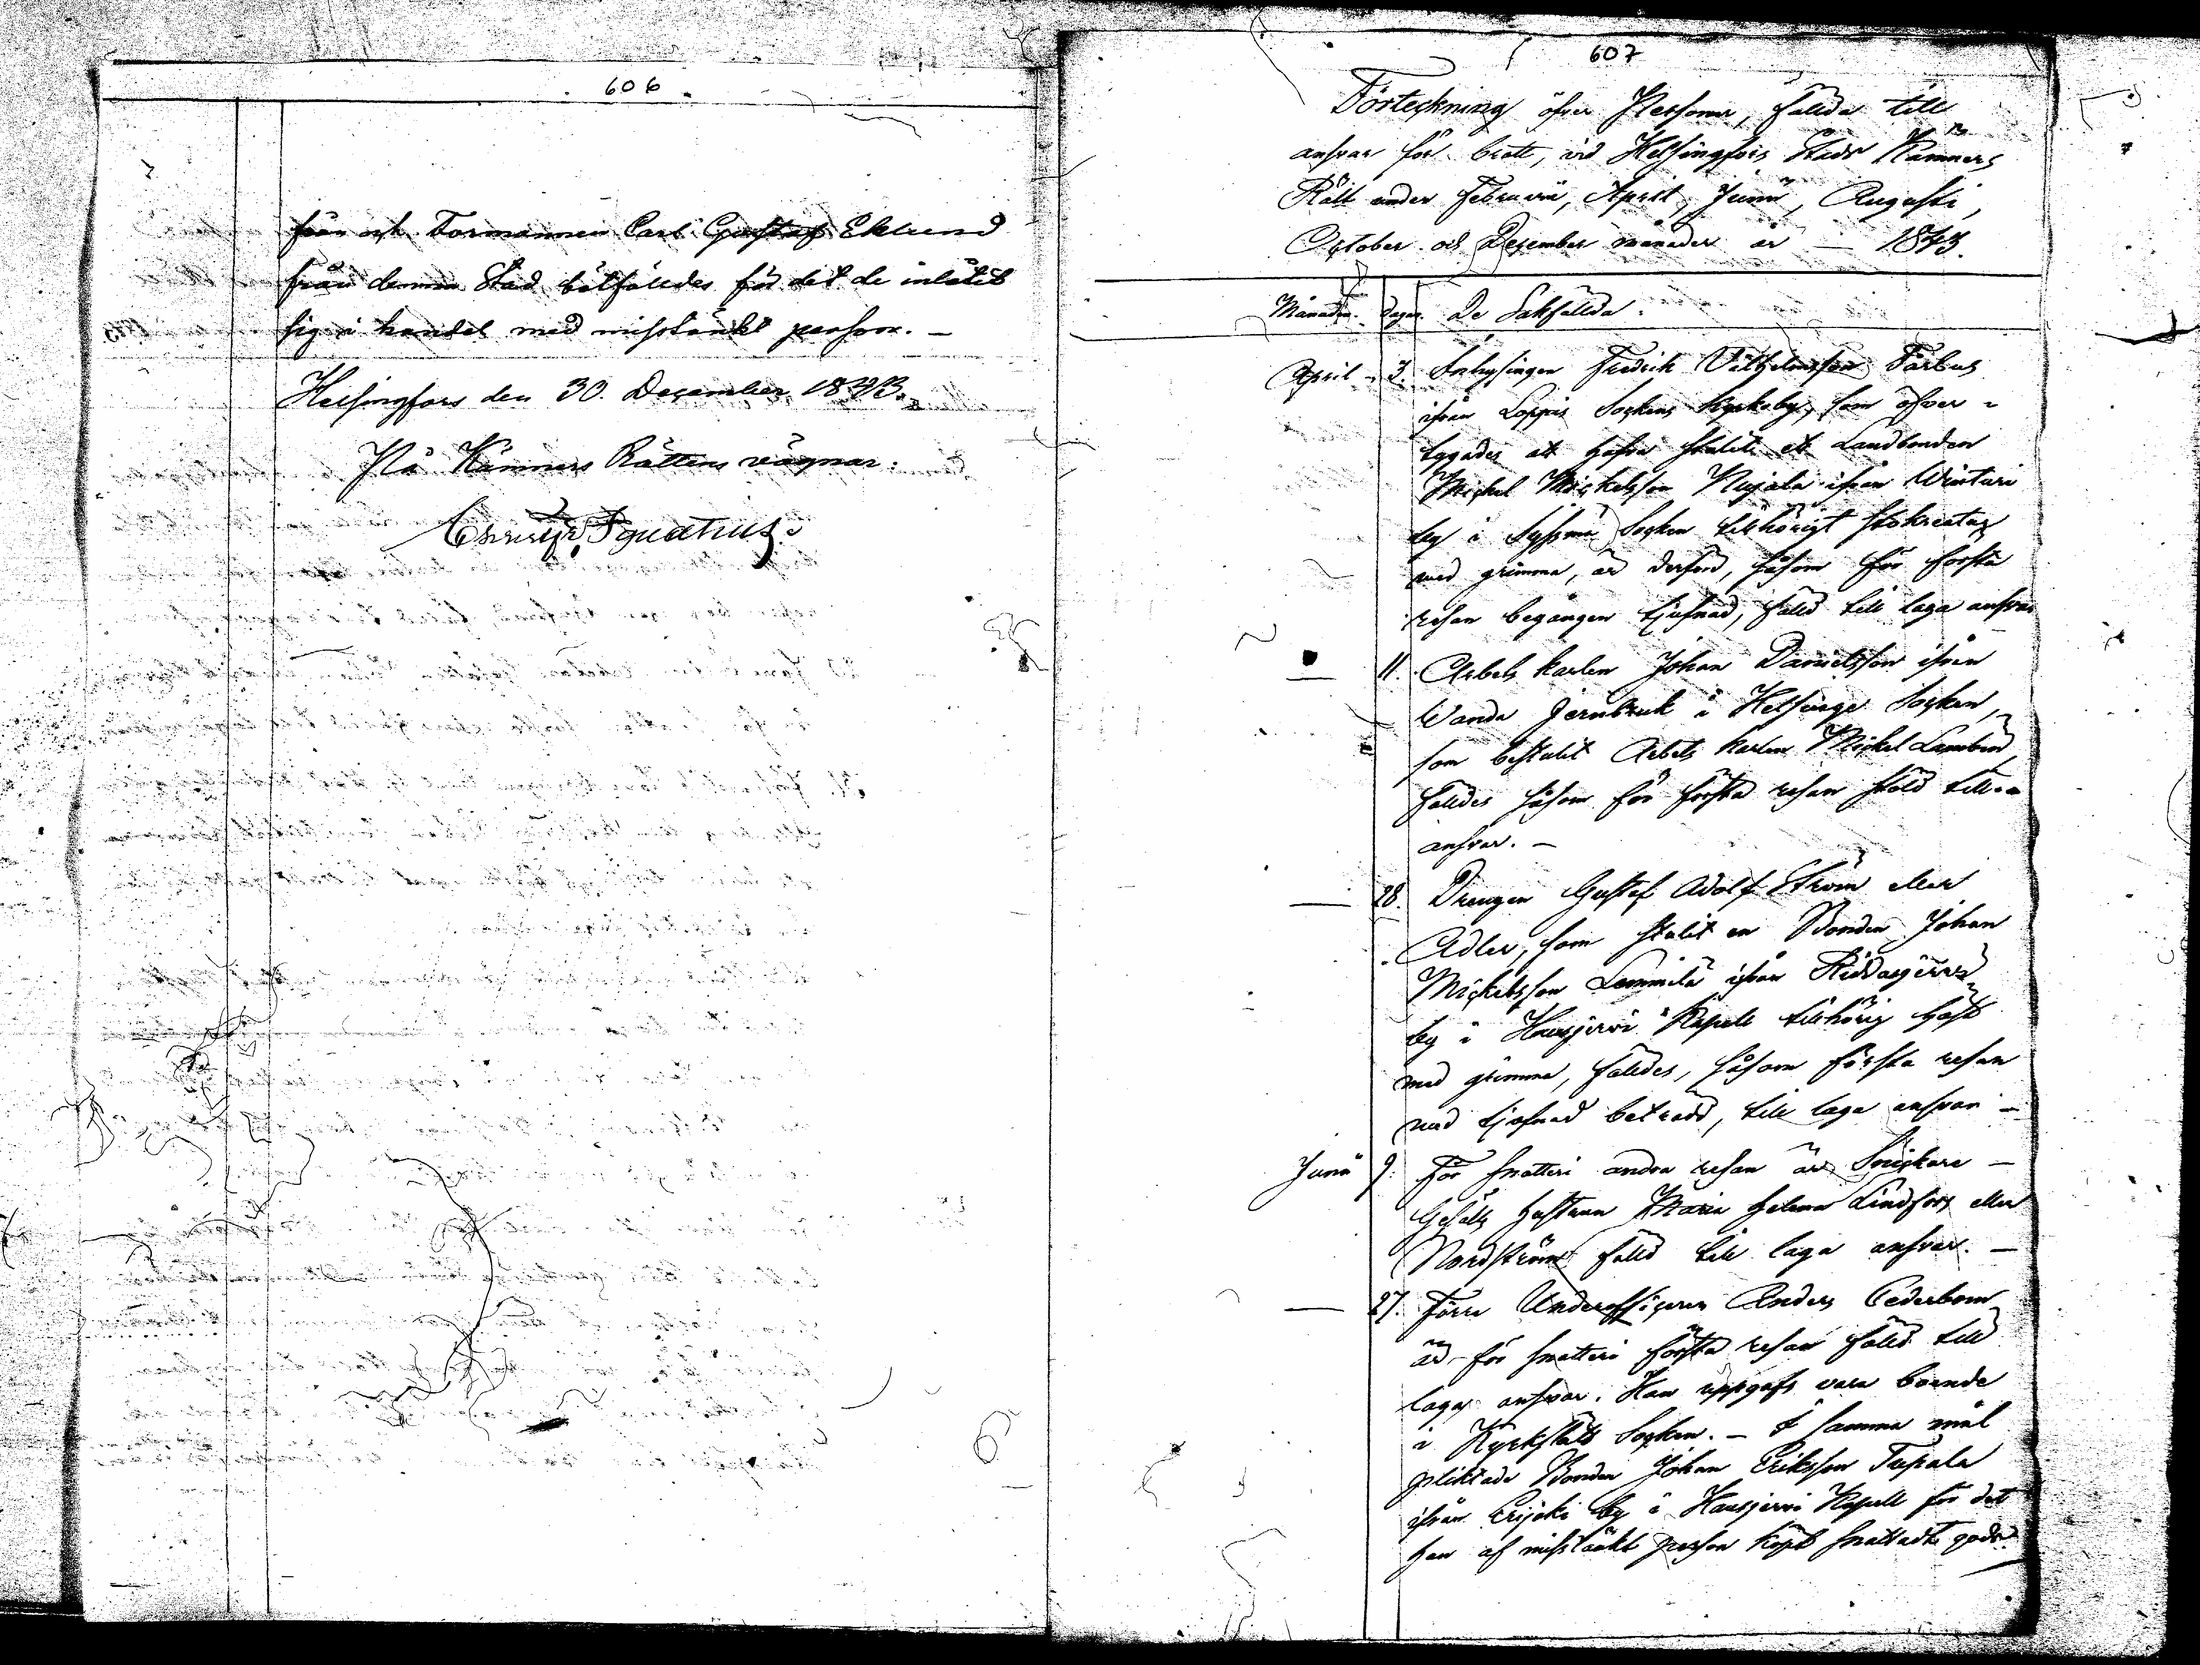 606
från och Formannen Carl Gustaf Eklund
från denna Stad bötfäldes för det de inlåtit
sig i handel med misstänkt person. –
Helsingfors den 30. December 1843.
På Kämners Rättens vägnar:
Ignatius
607
Förteckning öfver Personer, fällda till
ansvar för brott, vid Helsingfors Stads Kämners
Rätt under Februarii, April, Junii, Augusti,
October och December månader år – 1843.
Månader. Dagar. De Sakfällda.
April 3. Inhysingen Fredrik Vilhelmsson Färbus
ifrån Loppis Sockens Kyrkoby, som öfver-
tygades at hafva stulit et Landbonden
Mickel Mickelsson Nujala ifrån Wintari
by i Sysmä Socken tillhörigt stokreatur
med grimma, är derföre, såsom för första
resan begången tjufnad, fälld till laga ansvar
11. Arbets karlen Johan Danielsson ifrån
Wanda Jernbruk i Helsinge Socken,
som bestulit Arbets karlen Mickel Lambin,
fälldes såsom för första resan stöld till
ansvar. –
28. Drengen Gustaf Adolf Ström eller
Adler, som stulit en Bonden Johan
Mickelsson Lemmilä ifrån Riddasjärvi
by i Hausjervi Kapell tillhörig häst
med grimma, fälldes, såsom första resan
med tjufnad beträdd, till laga ansvar –
Junii 9. För snatteri andra resan är Snickare –
Gesälls hustrun Maria Helena Lindfors eller
Nordström fälld till laga ansvar. –
27. Förre Underofficeren Anders Cederbom
är för snatteri första resan fälld till
laga ansvar. Han uppgafs vara boende
i Kyrkslätt Socken. – I samma mål
pliktade Bonden Johan Eriksson Tupala
ifrån Erijoki by i Hausjervi Kapell för det
han af misstänkt person köpt snattadt gods